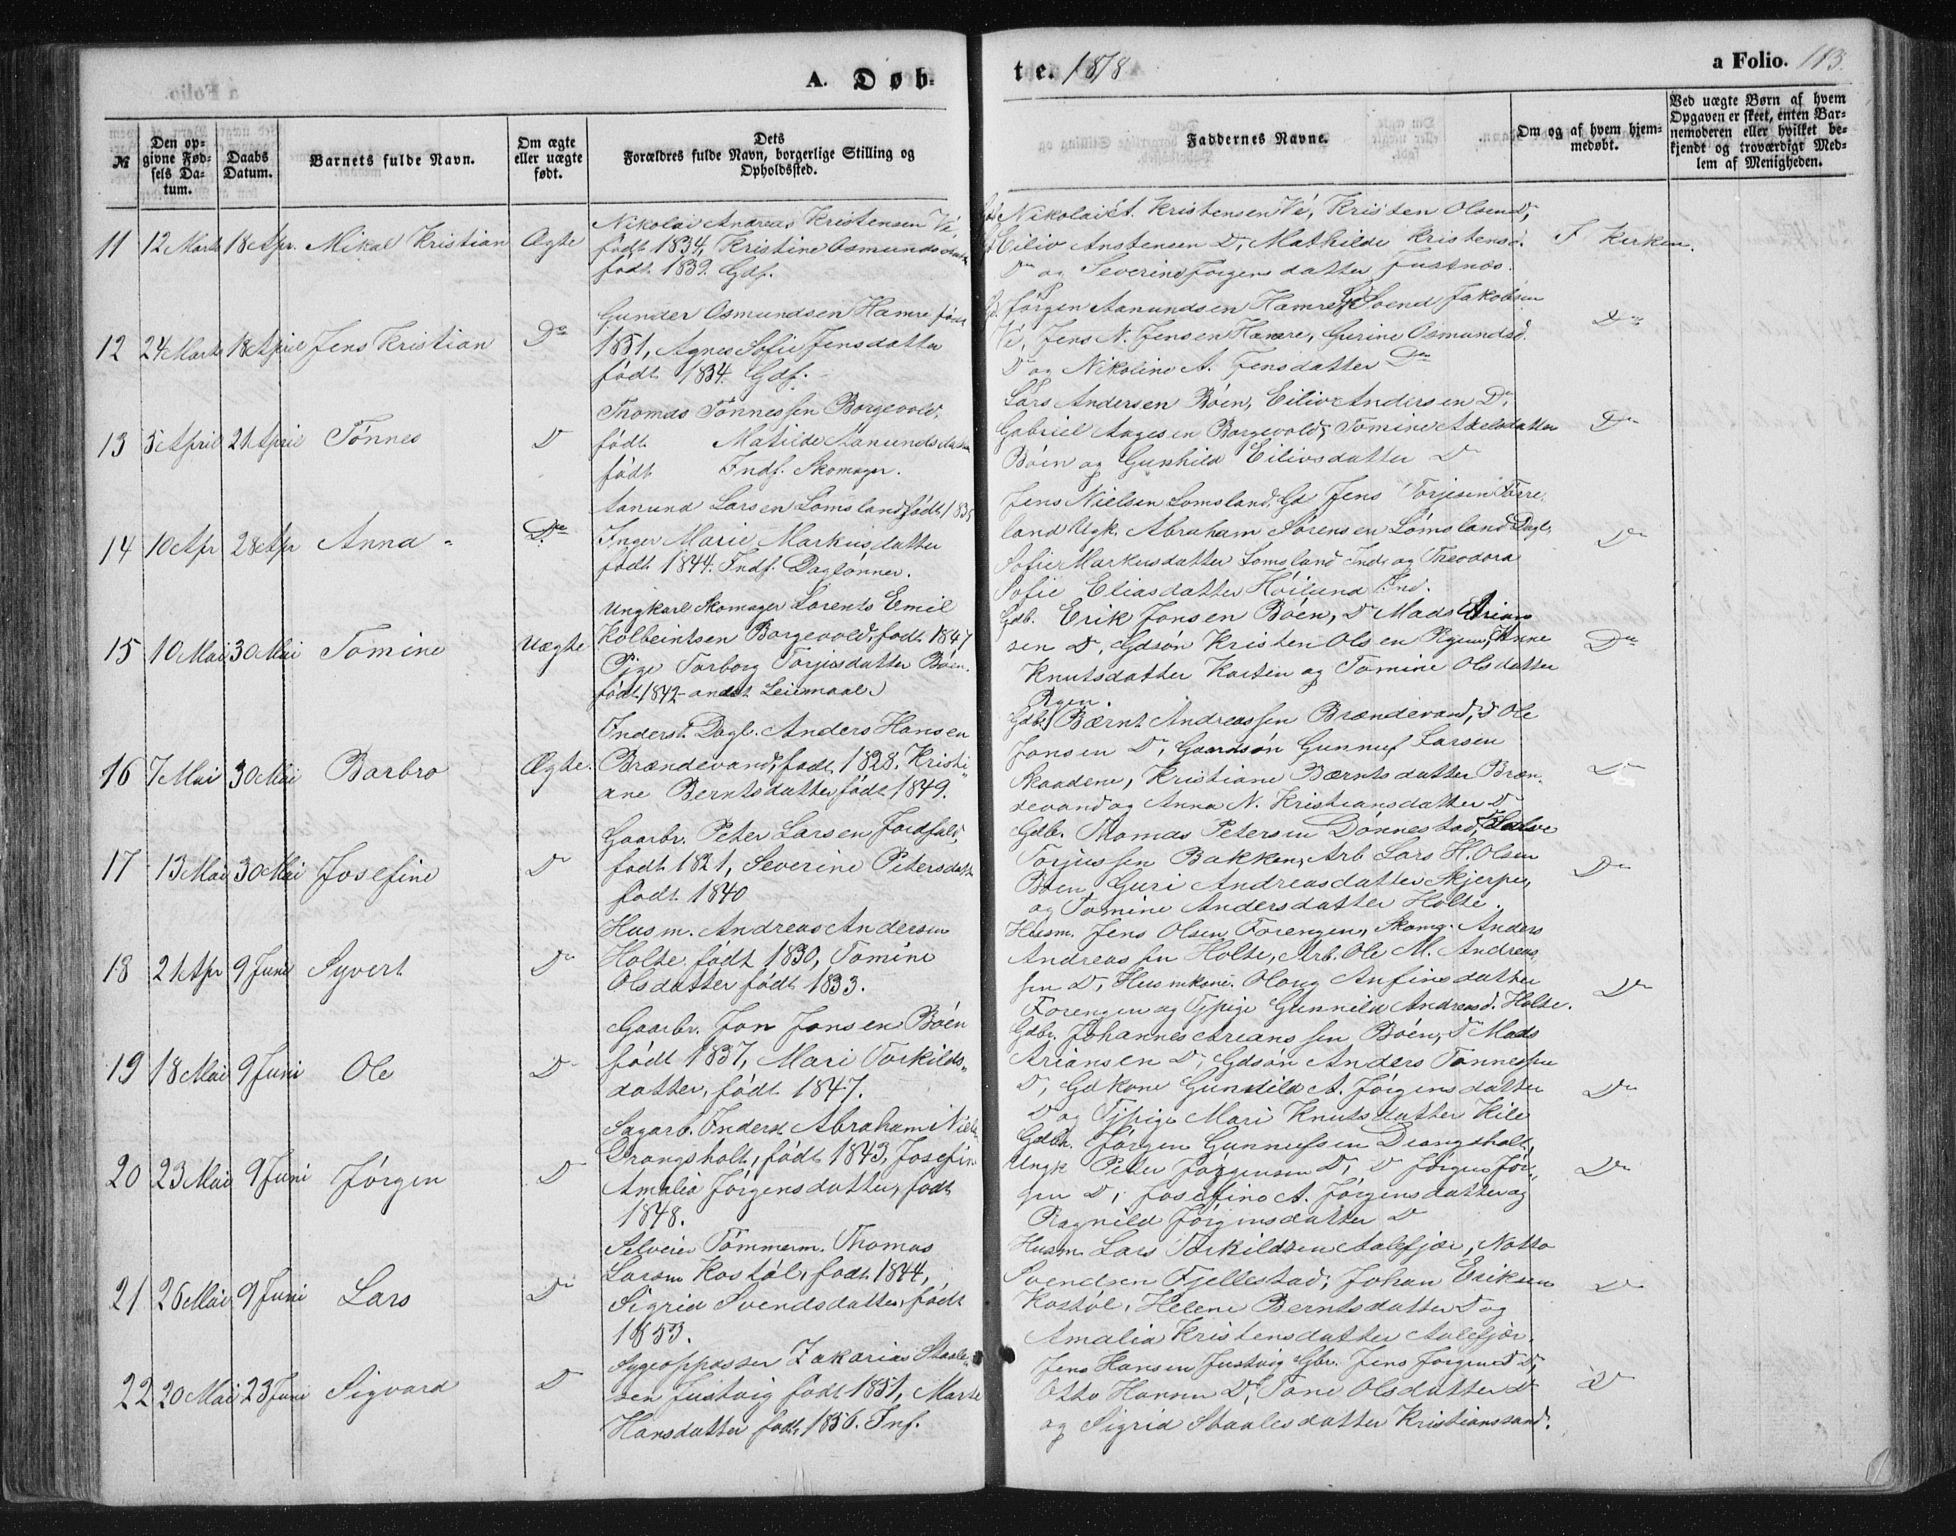 A. Døb-
te. 1878
a Folio. 113.
№
Den opgivne Fødsels Datum.
Daabs Datum.
Barnets fulde Navn.
Om ægte eller uægte født.
Dets Forældres fulde Navn, borgerlige Stilling og Opholdssted.
Faddernes Navne.
Om og af hvem hjemmedøbt.
Ved uægte Børn af hvem Opgaven er skeet, enten Barnemoderen eller hvilket bekjendt og troværdigt Medlem af Menigheden.
11 12 Marts 18 Apr. Mikal Kristian Ægte
Nikolai Andreas Kristensen Vé,
født 1834, Kristine Osmundsdatter
født 1839. Gdf.
Nikolai A. Kristensen Vé, Kristen Olsen Do,
Eiliv Anstensen Do, Mathilde Kristensd.
Do og Severine Jørgensdatter Justnæs.
I Kirken.
12 24 Marts 18 April Jens Kristian Do
Gunder Osmundsen Hamre født
1831, Agnes Sofie Jensdatter
født 1834. Gdf.
Jørgen Aanundsen Hamre, Svend Jakobsen
Vé, Jens N. Jensen Hamre, Gurine Osmundsd.
Do og Nikoline A. Jensdatter Do
Do
13 5 April 21 April Tønnes D
Thomas Tønnessen Borgevold.
født Matilde Aanundsdatter
født Indf. Skomager.
Lars Andersen Bóen, Eiliv Andersen Do,
Gabriel Aagesen Borgevold, Tomine Axelsdatter
Bóen og Gunhild Eilivsdatter Do
Do
14 10 Apr 28 Apr Anna Do
Aanund Larsen Lømsland, født 1835
Inger Marie Markusdatter
født 1844. Indf. Daglønner.
Jens Nielsen Lømsland, Gd Jens Torjesen Tørre,
land Ugk. Abraham Sørensen Lømsland Dagl,
Sofie Markusdatter Lømsland Ind. og Theodora
Sofie Eliasdatter Høilund Ind.
Do
15 10 Mai 30 Mai Tomine Uægte
Ungkarl Skomager Lorents Emil
Kolbeintsen Borgevold, født 1847
Pige Torborg Torjusdatter Bóen.
født 1842 - andet Leiemaal.
Gdb. Erik Jonsen Bóen, Do Mads Arian
sen Do, Gdsøn Kristen Olsen Rgen, Anne
Knutsdatter Kosten og Tomine Olsdatter
Rgen.
Do
16 7 Mai 30 Mai Barbro Ægte.
Inderst. Dagl. Anders Hansen
Brændevand, født 1828. Kristi-
ane Berntsdatter født 1849.
Gdb. Bærnt Andreassen Brændevand, Do Ole
Jonsen Do, Gaardsøn Gunnuf Larsen
Skaadene, Kristiane Bærntsdatter Bræn,
devand og Anna N. Kristiansdatter Do
Do
17 13 Mai 30 Mai Josefine D
Gaarbr. Peter Larsen Jordfald,
født 1821, Severine Petersdatt
født 1840
Gdb. Thomas Petersen Dønnestad,
Torjussen Bakken, Arb Lars H. Olsen
Bóen, Guri Andreasdatter Skjerpe,
og Tomine Andersdatter Holte.
Do
18 21 Apr 9 Juni Syvert Do
Husm. Andreas Andersen
Holte født 1830, Tomine
Olsdatter født 1833.
Husm. Jens Olsen Forengen, Skomg. Anders
Andreassen Holte, Arb. Ole M. Andreas
sen Do, Husmkone. Oloug Anfinsdatter
Forengen og Tjpige Gunnild Andreasd. Holte.
Do
19 18 Mai 9 Juni Ole Do
Gaarbr. Jon Jonsen Bóen
født 1837, Mari Torkilds-
datter, født 1847.
Gdbr. Johannes Arianssen Bóen, Do Mads
Ariansen Do, Gdsøn Anders Tønnessen
Do, Gdkone Gunnild A. Jørgensdatter
Do og Tjpige Mari Knutsdatter Kile
Do
20 23 Mai 9 Juni Jørgen Do
Sagarb. Inderst Abraham Niels
Drangsholt, født 1843, Josefin
Amalia Jørgensdatter, født
1848.
Gdbr. Jørgen Gunnufsen Drangsholt,
Ungk Peder Jørgensen Do, Do Jørgen Jør-
gen Do, Josefine A. Jørgensdatter og
Ragnild Jørginsdatter Do
Do
21 26 Mai 9 Juni Lars Do
Selveier Tømmerm. Thomas
Larsen Kostøl, født 1844,
Sigrid Svendsdatter, født
1853.
Husm. Lars Torkildsen Aalefjær, Notto
Svendsen Fjellestad, Johan Eriksen
Kostøl, Helene Berntsdatter Do og
Amalia Kristensdatter Aalefjær.
Do
22 20 Mai 23 Juni Sigvard Do
Sygeopasser Zakarias Staale-
sen Justvig født 1851, Marte
Hansdatter født, 1856. Inf.
Jens Hansen Justvig Gbr. Jens Jørgens Do,
Otto Hansen Do, Tone Olsdatter Do
og Sigrid Staalesdatter Kristianssand.
Do